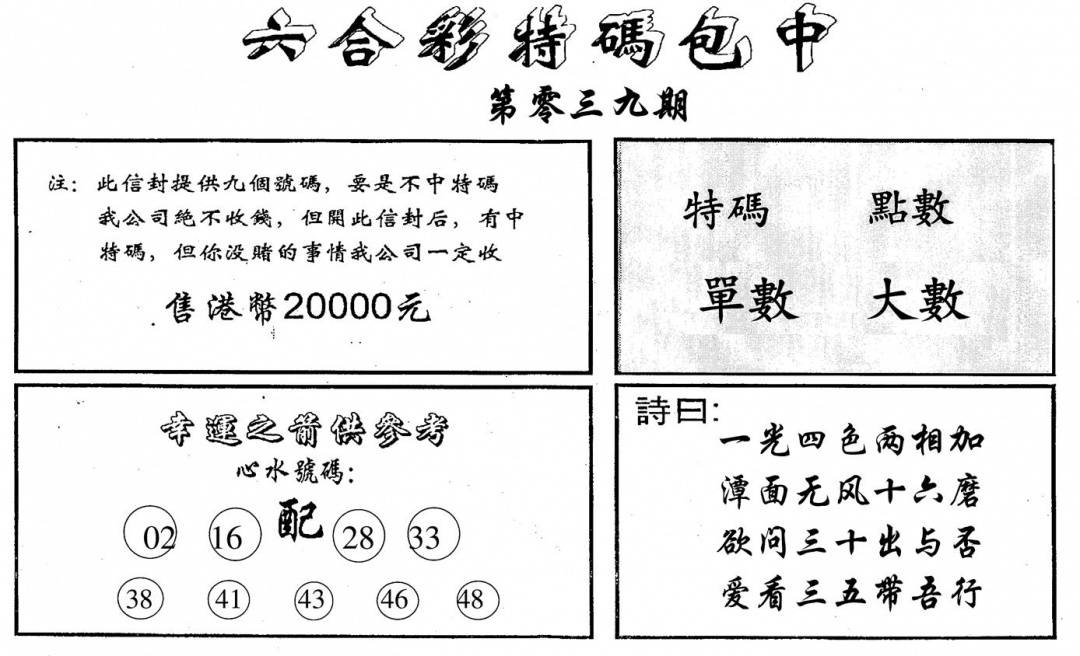 六合彩特碼包中
第零三九期
注：此信封提供九個號碼，要是不中特碼
我公司絕不收錢，但開此信封后，有中
特碼，但你没賭的事情我公司一定收
售港幣20000元
特碼 點數
單數 大數
幸運之箭供參考
心水號碼：
02 16 配 28 33
38 41 43 46 48
詩曰：
一光四色两相加
潭面无风十六磨
欲问三十出与否
爱看三五帶吾行